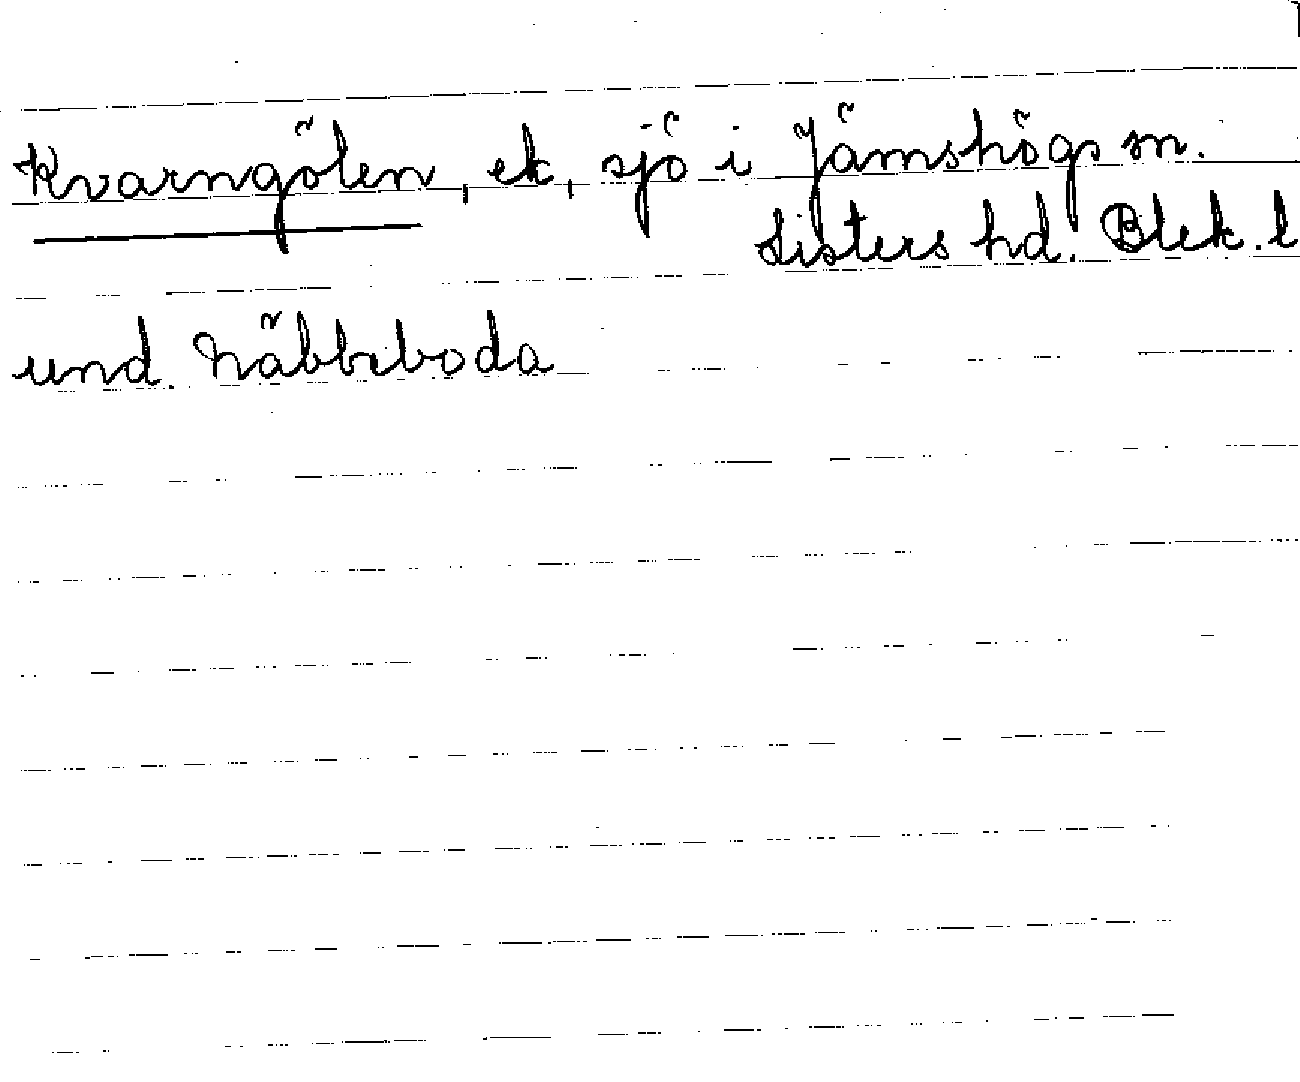 Kvarngölen, ek, sjö i Jämshögs sn.
Listers hd. Blek. l
und. Näbbeboda